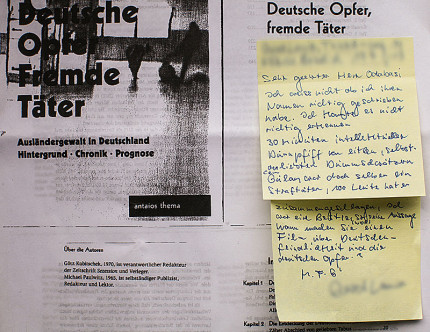 Deutsche
Opfer
Fremde
Täter
Ausländergewalt in Deutschland
Hintergrund · Chronik · Prognose
antaios thema
Über die Autoren
Götz Kubitschek, 1970, ist verantwortlicher Redakteur
der Zeitschrift Sezession und Verleger.
Michael Paulwitz, 1965, ist selbständiger Publizist,
Redakteur und Lektor.
Deutsche Opfer,
fremde Täter
Sehr geehrter Herr
Ich weiss nicht ob ich ihren
Namen richtig geschrieben
habe. Ich konnte es nicht
richtig erkennen
30 Minuten intellektueller
Dünnpfiff von linken, selbst-
Dummschwätzern
war doch selber ein
Straftäter, 100 Leute hat er
zusammengeschlagen, Das
war ein Bestie, seine Aussage
Wann machen Sie einen
Film über Deutschen-
feindlichkeit und die
deutschen Opfer?
M. F. G
Kapitel 1
Kapitel 2